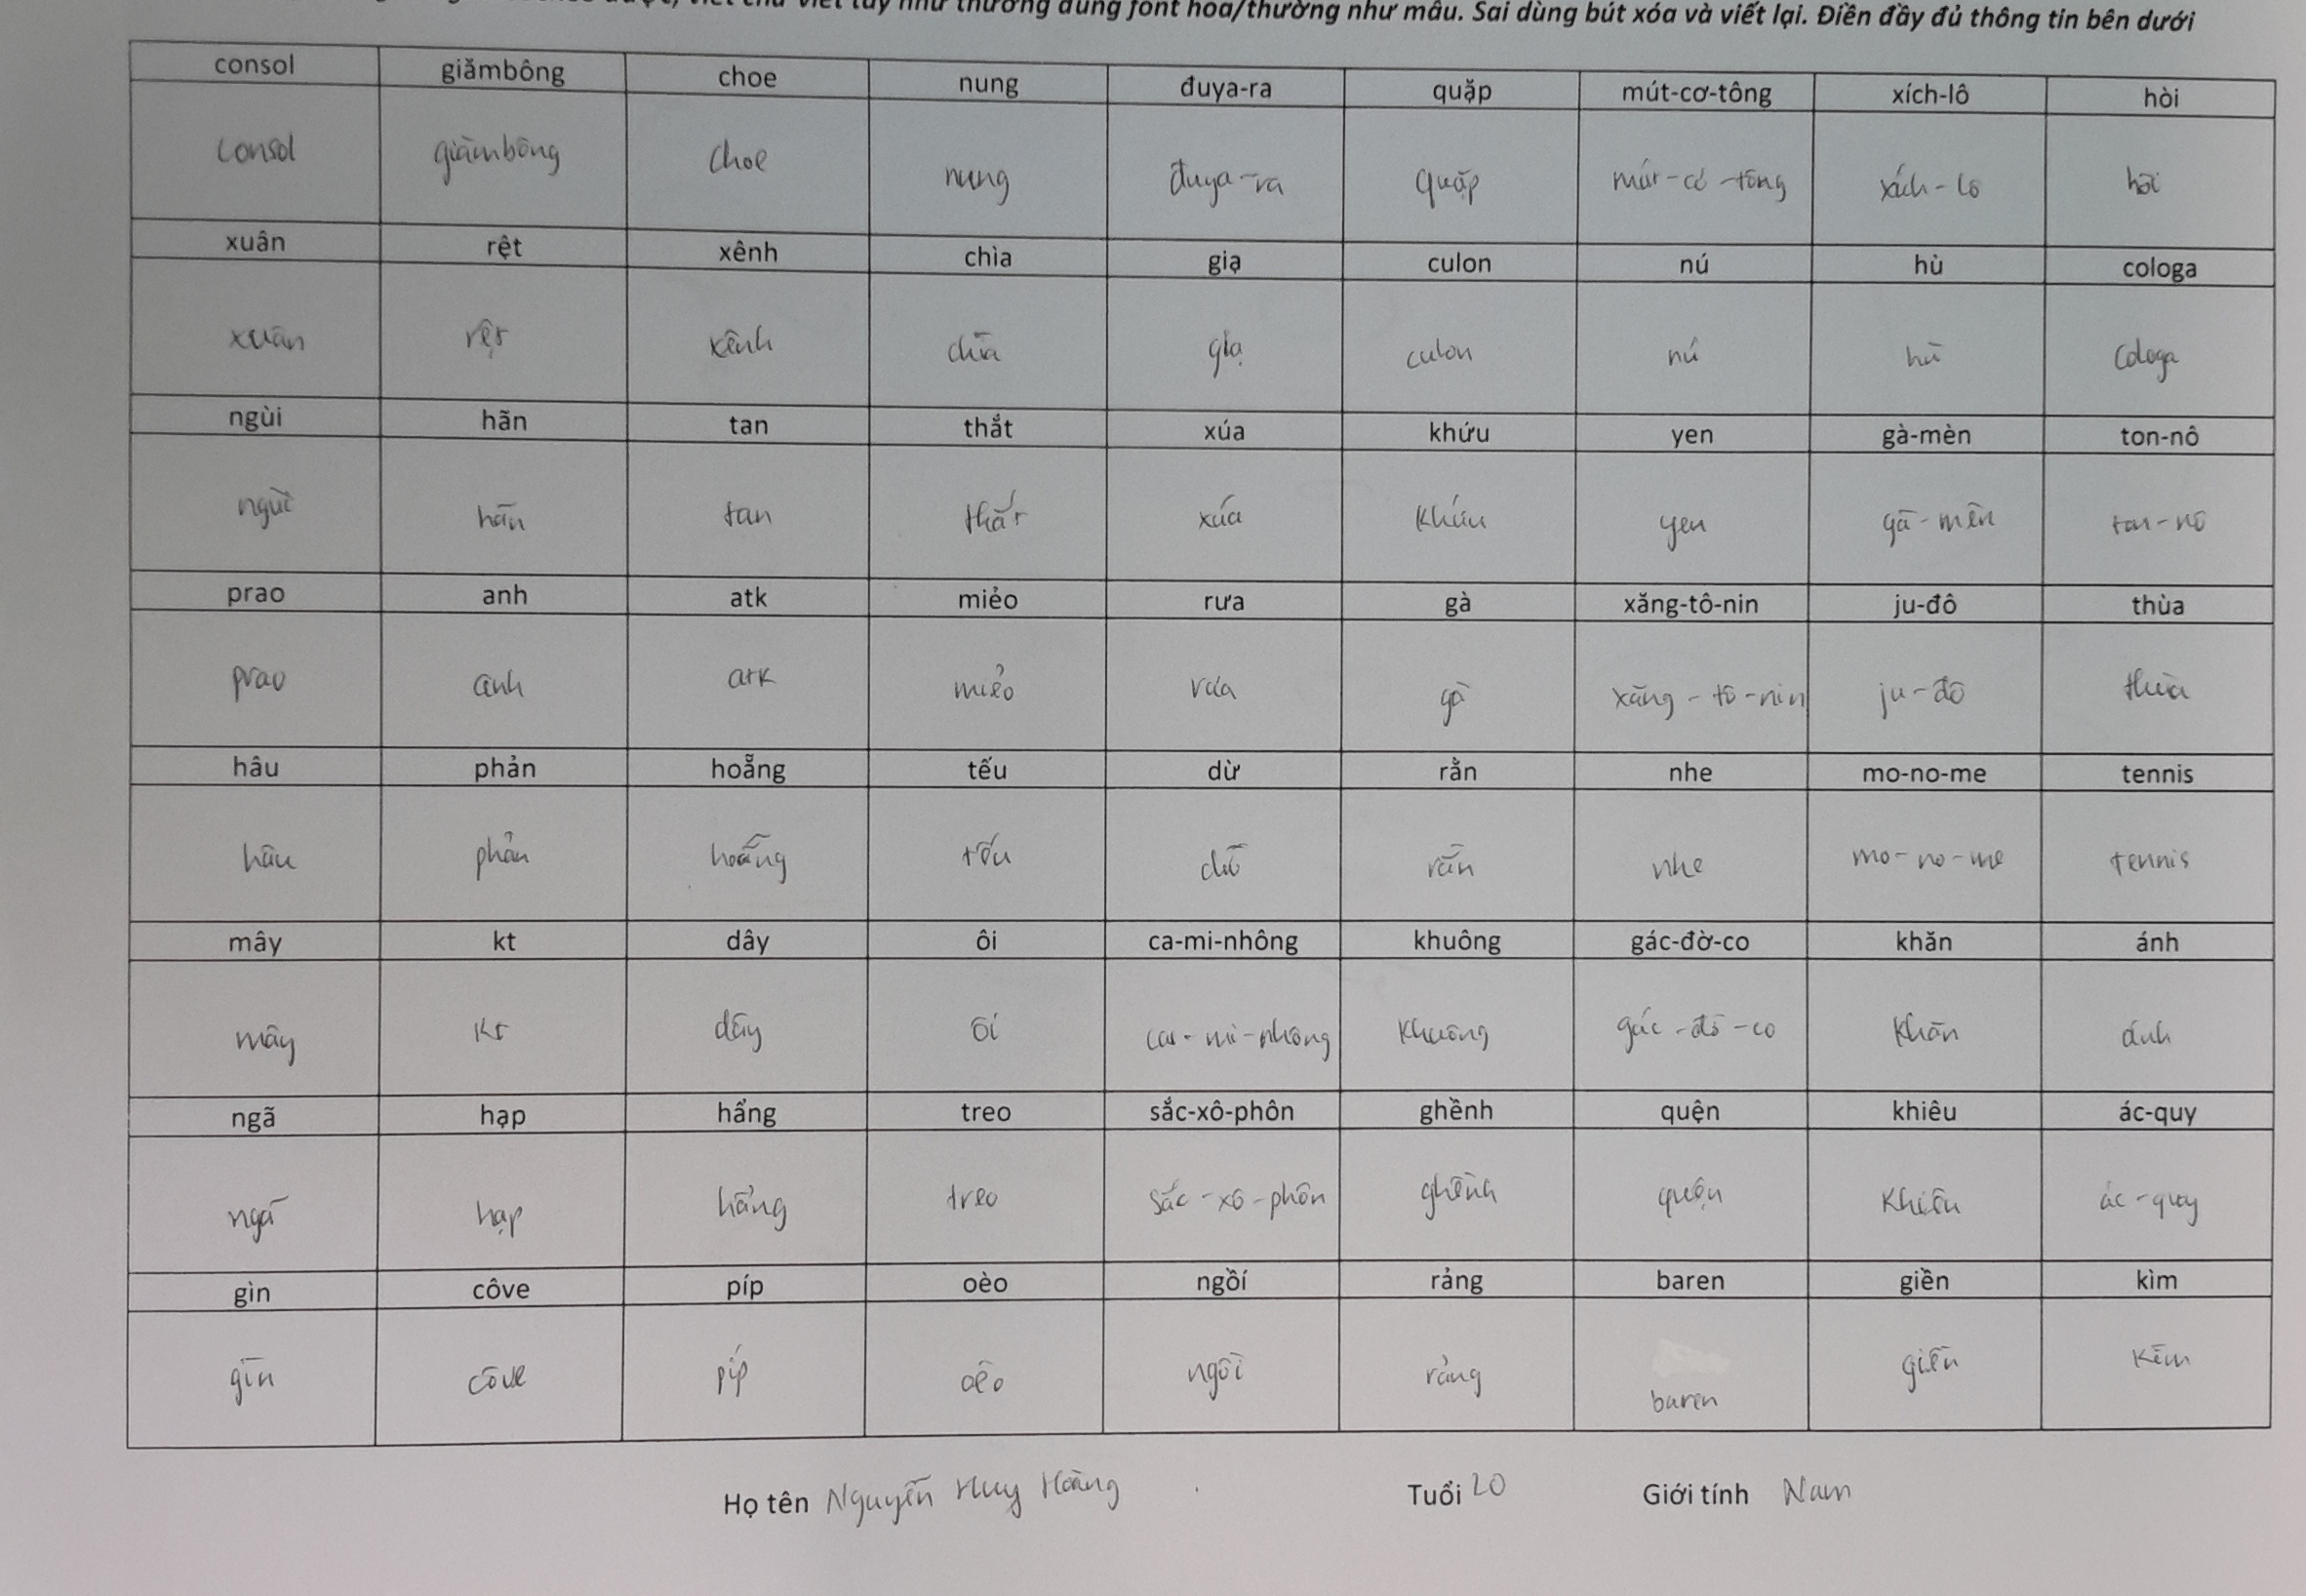 viết chữ viết tay như thường dùng font hoa/thường như mẫu. Sai dùng bút xóa và viết lại. Điền đầy đủ thông tin bên dưới
consol giămbông choe nung đuya-ra quặp mút-cơ-tông xích-lô hòi
consol giămbông choe nung đuya-ra quặp mút-cơ-tông xích-lô hòi
xuân rệt xênh chìa giạ culon nú hù cologa
xuân rệt xênh chìa giạ culon nú hù cologa
ngùi hãn tan thắt xúa khứu yen gà-mèn ton-nô
ngùi hãn tan thắt xúa khứu yen gà-mèn ton-nô
prao anh atk miẻo rưa gà xăng-tô-nin ju-đô thùa
prao anh atk miẻo rưa gà xăng-tô-nin ju-đô thùa
hâu phản hoẵng tếu dừ rằn nhe mo-no-me tennis
hâu phản hoẵng tếu dừ rằn nhe mo-no-me tennis
mây kt dây ôi ca-mi-nhông khuông gác-đờ-co khăn ánh
mây kt dây ôi ca-mi-nhông khuông gác-đờ-co khăn ánh
ngã hạp hẩng treo sắc-xô-phôn ghềnh quện khiêu ác-quy
ngã hạp hẩng treo sắc-xô-phôn ghềnh quện khiêu ác-quy
gìn côve píp oèo ngồí rảng baren giền kìm
gìn côve píp oèo ngồí rảng baren giền kìm
Họ tên Nguyễn Huy Hoàng Tuổi 20 Giới tính Nam